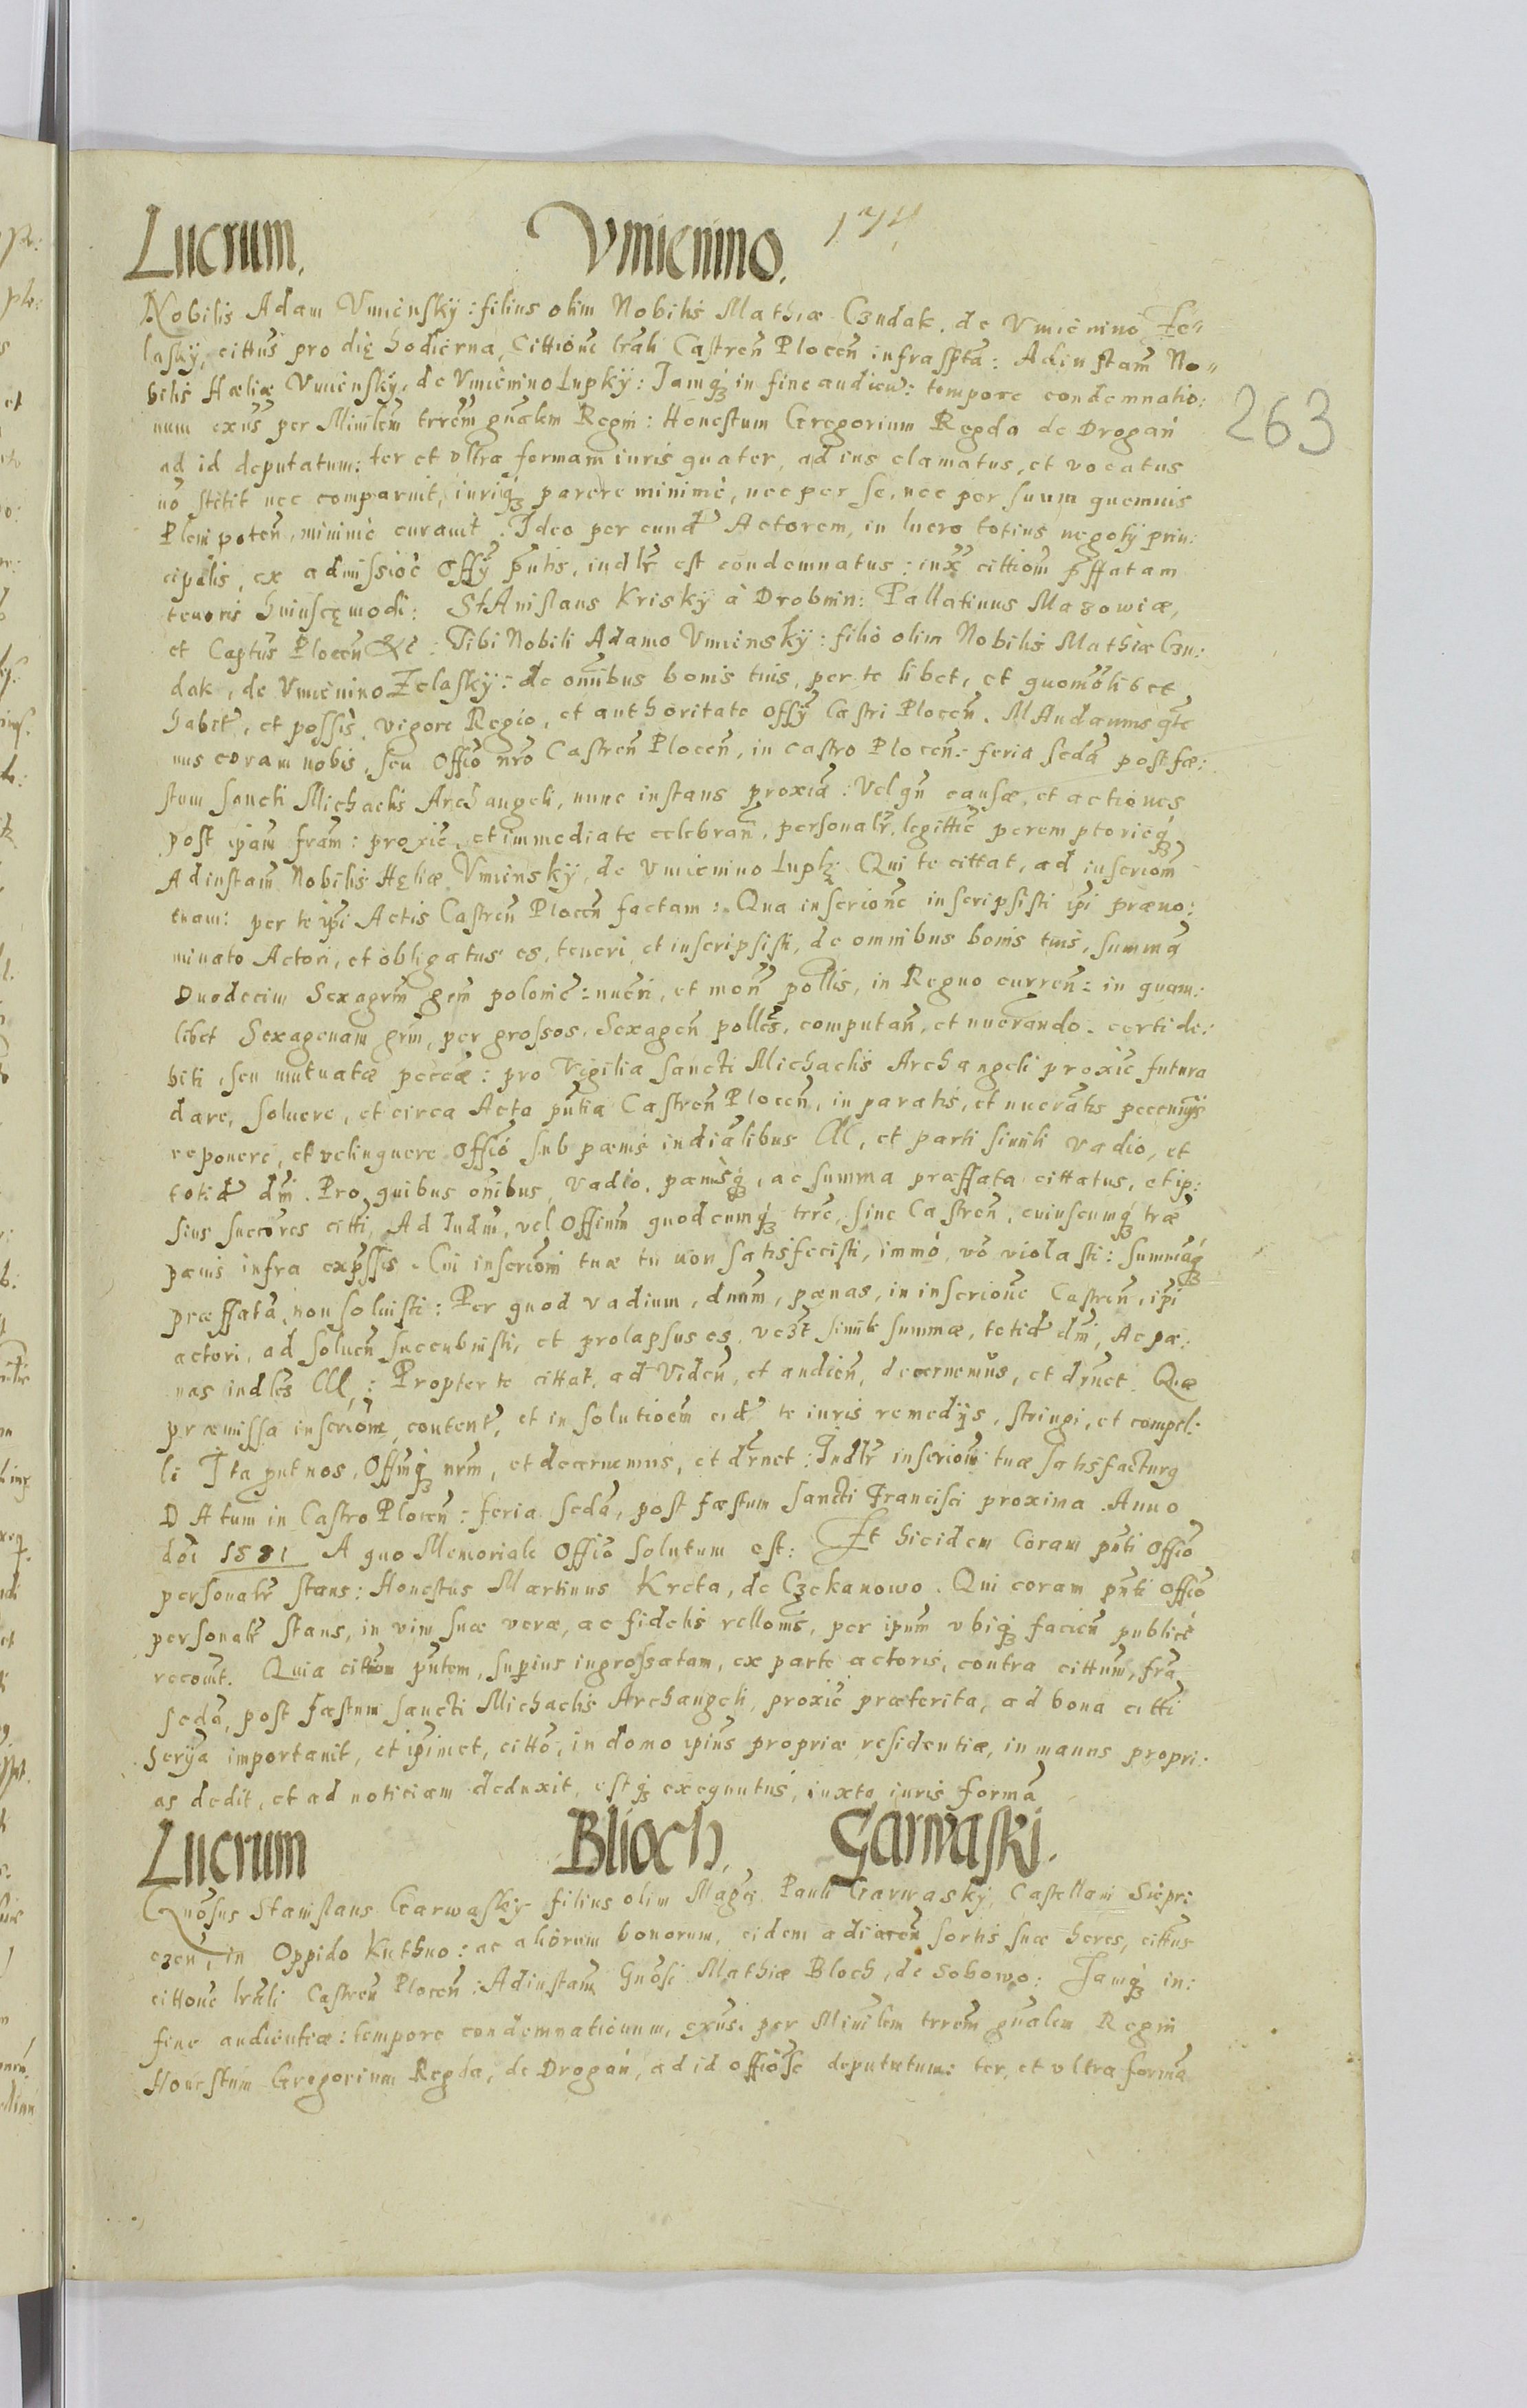 Lucrum. Vmienino. 174
263
Nobilis Adam Vmiensky: filius olim Nobilis Mathiæ Czudak. de Vmienino Ze„
lasky, cittus pro die hodierna, Cittione lrali Castren Plocen infrasptã: Ad instam No„
bilis Hæliæ Vmiensky, de Vmienino Lupky: Iamqz in fine audien: tempore condemnatio:
num exus per Minlem trrem gnalem Regni: Honestum Gregorium Regda de Drogań
ad id deputatum: ter et vltra formam iuris quater, ad ius clamatus, et vocatus
nõ stetit nec comparuit, iuriqz parere minimè, nec per se, nec per suum quemuis
Plenipoten, minimè curauit. Ideo per eund Actorem, in lucro totius negoty prin:
cipalis, ex admissiõe Offy pntis, indlr est condemnatus: iux cittiom pffatam
tenoris huiuscemodi: StAnislaus Krisky à Drobnin: Pallatinus Mazowiæ,
et Captus Plocen &c: Tibi Nobili Adamo Vmiensky: filiò olim Nobilis Mathiæ Czu:
dak, de Vmienino Zelasky: de omibus bonis tuis, per te libet, et quomolibet
habit, et possis, vigore Regio, et authoritate Offy Castri Plocen. MAndamus qte
nus coram nobis, seu Offio nro Castren Plocen, in castro Plocen: feria sedã post fæ:
stum sancti Michaelis Archangeli, nunc instans proxiã: Vel qn causæ, et actiones
post ipam fram: proxie, et immediate celebran, personalr, legittie peremptorieqz
Ad instam Nobilis Hęliæ Vmiensky, de Vmienino Lupky Qui te cittat, ad inscriom
tuam: per te ipi Actis Castren Plocen factam: Qua inscrione inscripsisti ipi præno:
minato Actori, et obligatus es, teneri, et inscripsisti, de omnibus bonis tuis, summã
Duodecim Sexagrm grm polonie: nueri, et mon pollis, in Regno curren: in quam:
libet Sexagenam grm, per grossos, Sexagen polles, computan, et nuerando. certi de:
biti, seu mutuatæ peccæ: pro Vigilia sancti Michaelis Archangeli proxie futura
dare, soluere, et circa Acta pntia Castren Plocen, in paratis, et nueratis peccunys
reponere, et relinquere Offiò sub pænis indialibus CCC, et parti simili vadio, et
totid dni. Pro quibus onibus, vadio, pænisqz, ac summa præffata cittatus, et ip:
sius succores citti, Ad Iudm, vel Offium quodcumqz trre, siue Castren, cuiuscumqz træ
pænis infra expssis. Cui inscriom tuæ tu non satisfecisti, immò võ violasti: summãqz
præffatã, non soluisti: Per quod vadium, dnum, pænas, in inscrione Castren, ipi
actori, ad soluen succubuisti, et prolapsus es, vezt simile summæ, totid dni, Ac pæ:
nas indles CCC: Propter te cittat, ad Viden, et audien, decernemus, et drnet. Quæ
præmissa inscriome, content, et in solutioem eid te iuris remedys, stringi, et compel:
li Ita put nos, Offimqz nrm, et decernemus, et drnet: Indlr inscriom tuæ satisfacturg
DAtum in Castro Plocen: feria sedã, post fæstum sancti Francisci proxima Anno
doi 1581 A quo Memoriale Offio solutum est: Et hicidem Coram pnti Offio
personalr stans: Honestus Martinus Kreta, de Czekanowo. Qui coram pnti Offio
personalr stans, in vim suæ veræ, ac fidelis rellomis, per ipum vbiqz facien publicè
recouit. Quia cittiom pntem, supius ingrossatam, ex parte actoris, contra cittum, fra
sedã, post fæstum sancti Michaelis Archangeli, proxie præterita, ad bona citti
scrya importauit, et ipimet, cittò, in domo ipius propriæ residentiæ, in manus propri:
as dedit, et ad noticiam deduxit, estqz exequutus, iuxta iuris formã
Lucrum Blioch. Garwaski.
Gnosus Stanislaus Garwasky filius olim Magci Pauli Garwasky, Castellani Siepr:
czen, in Oppido Kuthno: ac aliorum bonorum, eidem adiacen sortis suæ heres, cittus
cittone lrali Castren Plocen: Ad instam Gnosi Mathiæ Bloch, de Sobowo: Iamqz in:
fine audientiæ: tempore condemnationum, exus: per Minilem trrem gnalem Regni
Honestum Gregorium Regda, de Drogań, ad id offiose deputatum: ter, et vltra formã